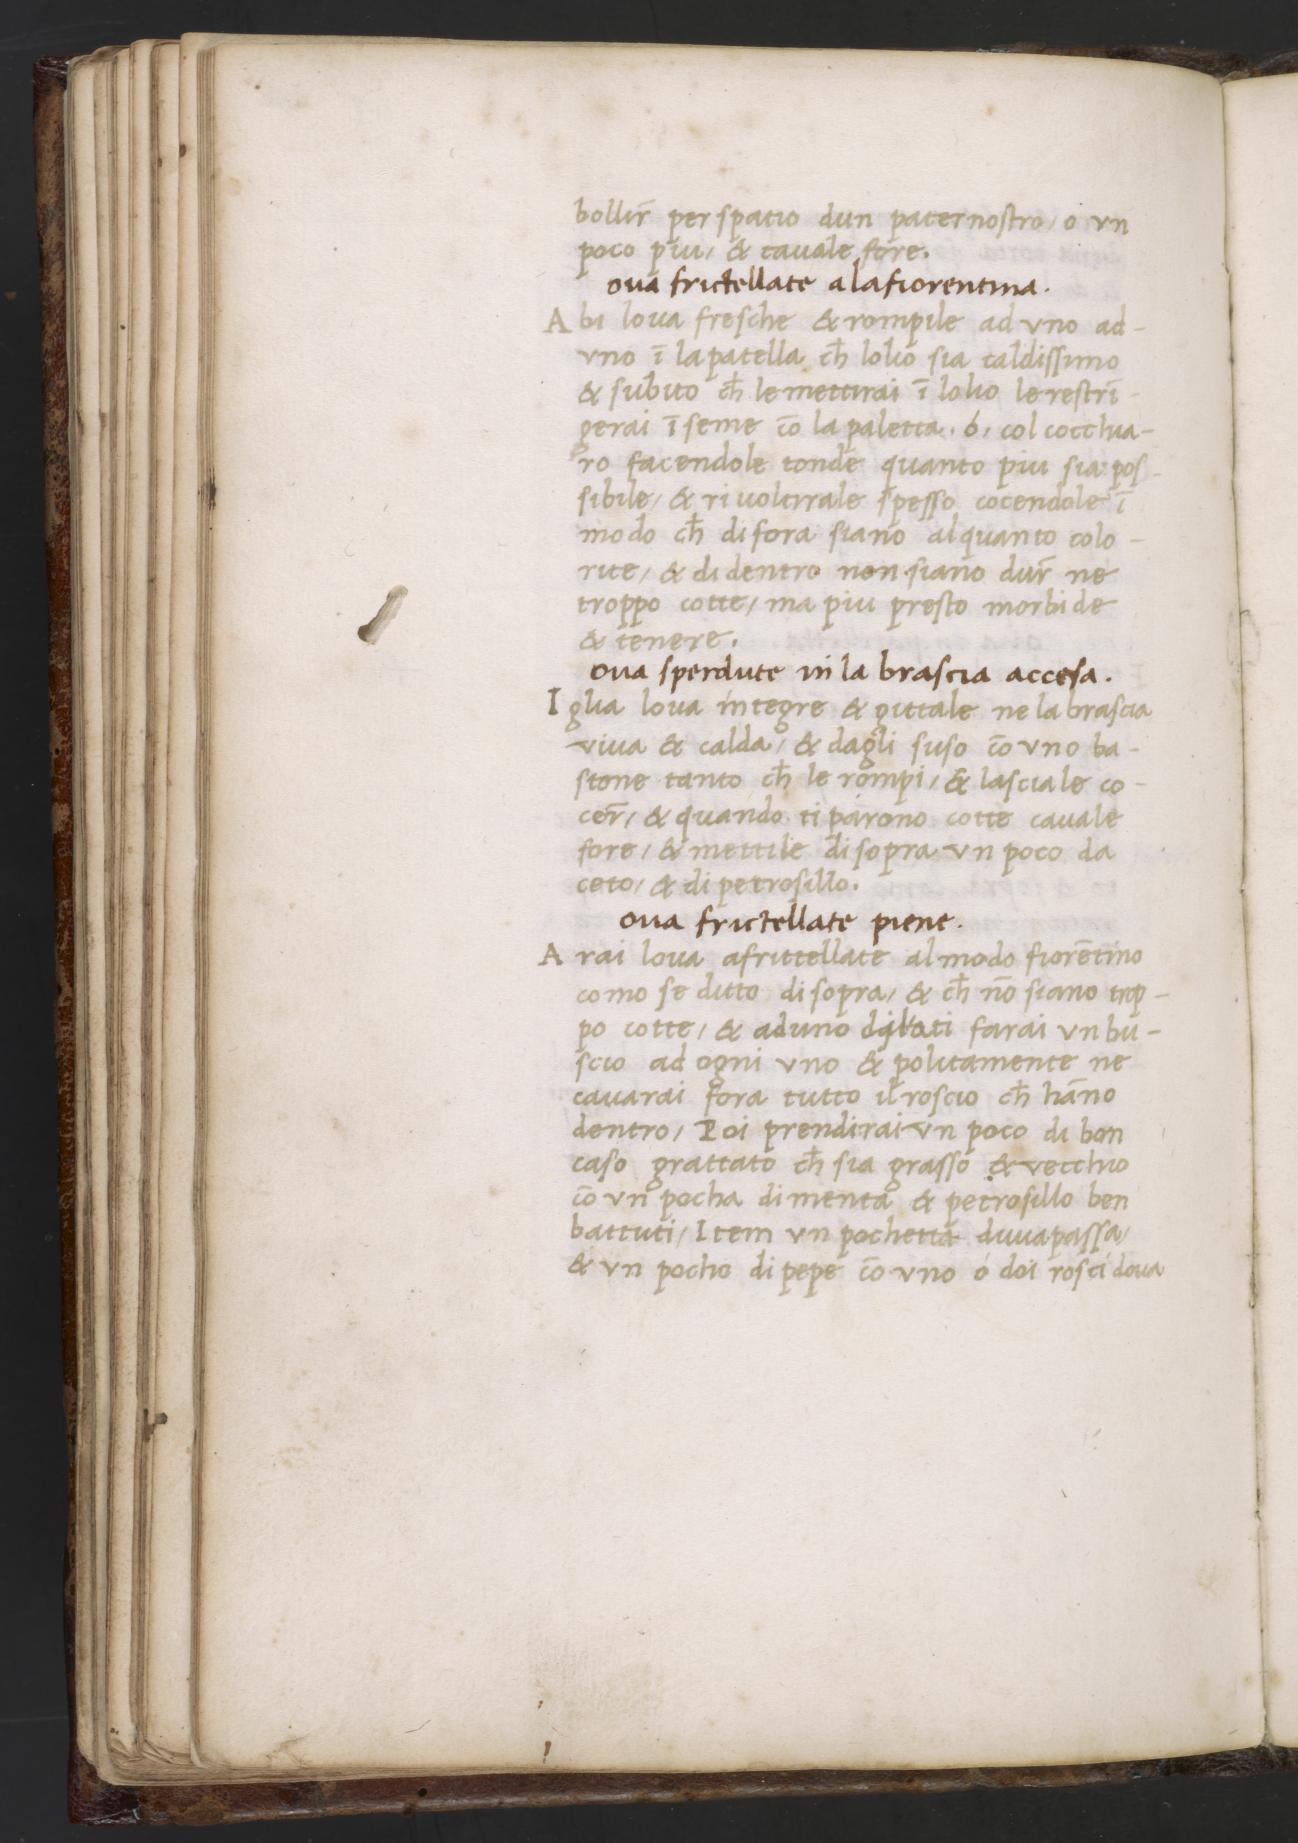 bollir̄ per spatio dun paternostro/ o vn
poco piu/ & cauale fore.
oua frictellate a la fiorentina.
A bi loua fresche & rompile ad vno ad-
vno ī la patella ch̄ lolio sia caldissimo
& subito ch̄ le mettirai ī lolio le restrī-
gerai ī seme cō la paletta. ó, col cocchia-
ro facendole tonde quanto piu sia pos-
sibile/ & riuoltirale spesso cocendole ī
modo ch̄ di fora siano alquanto colo-
rite/ & di dentro non siano dur̄ ne
troppo cotte/ ma piu presto morbide
& tenere.
oua sperdute in la brascia accesa.
I glia loua integre & gittale ne la brascia
viua & calda/ & dagli suso cō vno ba-
stone tanto ch̄ le rompi/ & lasciale co-
cer̄/ & quando ti parono cotte cauale
fore/ & mettile di sopra vn poco da
ceto/ & di petrosillo.
oua frictellate piene.
A rai loua afrittellate al modo fiorētino
como se ditto di sopra/ & ch̄ nō siano trop-
po cotte/ & aduno dilati farai vn bu-
scio ad ogni vno & politamente ne
cauarai fora tutto il roscio ch̄ hāno
dentro/ Poi prendirai vn poco di bon
caso grattato ch̄ sia grasso & vecchio
cō vn pocha di menta & petrosillo ben
battuti/ Item vn pochetta duuapassa/
& vn pocho di pepe cō vno ó doi rosci doua